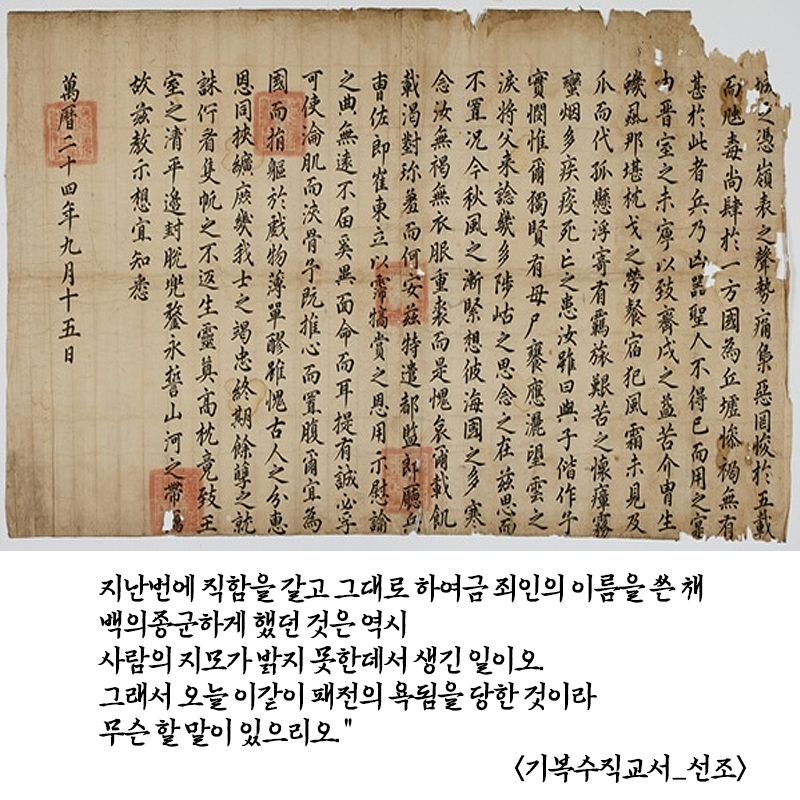 城之憑嶺表之聲勢痛梟惡罔悛於五載
而虺毒尚肆於一方國為丘墟慘禍無有
甚於此者兵乃凶器聖人不得已而用之
晉室之未寧以致齊戍之益苦介冑生
蟣風那堪枕戈之勞餐宿犯風霜未見及
瓜而代孤懸浮寄有羈旅艱苦之懷瘴霧
蠻烟多疾疫死亡之患汝雖曰與子偕作予
實憫惟爾獨賢有母尸饔應灑望雲之
淚將父來諗幾多陟岵之思念之在茲思而
不置況今秋風之漸緊想彼海國之多寒
念汝無褐無衣服重裘而是愧哀爾載飢
載渴對珎羞而何安茲特遣都監郎廳兵
曹佐郎崔東立以霈犒賞之恩用示慰諭
之典無遠不届奚異面命而耳提有誠必孚
可使淪肌而浹骨予既推心而置腹爾宜為
國而捐軀於戲物薄單醪雖愧古人之分惠
恩同挾纊庶幾我士之竭忠終期餘孽之就
誅佇看隻帆之不返生靈奠高枕竟致王
室之清平邊封脫兜鍪永誓山河之帶
故茲教示想宜知悉
萬曆二十四年九月十五日
지난번에 직함을 갈고 그대로 하여금 죄인의 이름을 쓴 채
백의종군하게 했던 것은 역시
사람의 지모가 밝지 못한데서 생긴 일이오.
그래서 오늘 이같이 패전의 욕됨을 당한 것이라
무슨 할 말이 있으리오."
<기복수직교서_선조>